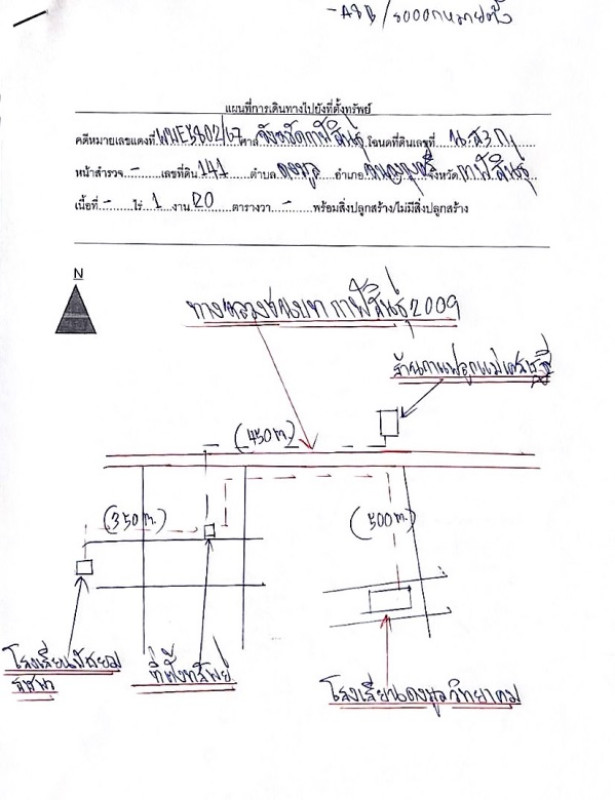 แผนที่การเดินทางไปยังที่ตั้งทรัพย์
คดีหมายเลขแดงที่ ผบE3802/67 ศาล จังหวัดกาฬสินธุ์ โฉนดที่ดินเลขที่ น.ส.3 ก.
หน้าสำรวจ - เลขที่ดิน 141 ตำบล ดงมูล อำเภอ หนองกุงศรี จังหวัด กาฬสินธุ์
เนื้อที่ - ไร่ 1 งาน 20 ตารางวา - พร้อมสิ่งปลูกสร้าง/ไม่มีสิ่งปลูกสร้าง
N
ทางหลวงชนบท กาฬสินธุ์ 2009
(450 m.)
(350 m.)
(500 m.)
โรงเรียน
ที่ตั้งทรัพย์
โรงเรียนดงมูลวิทยาคม